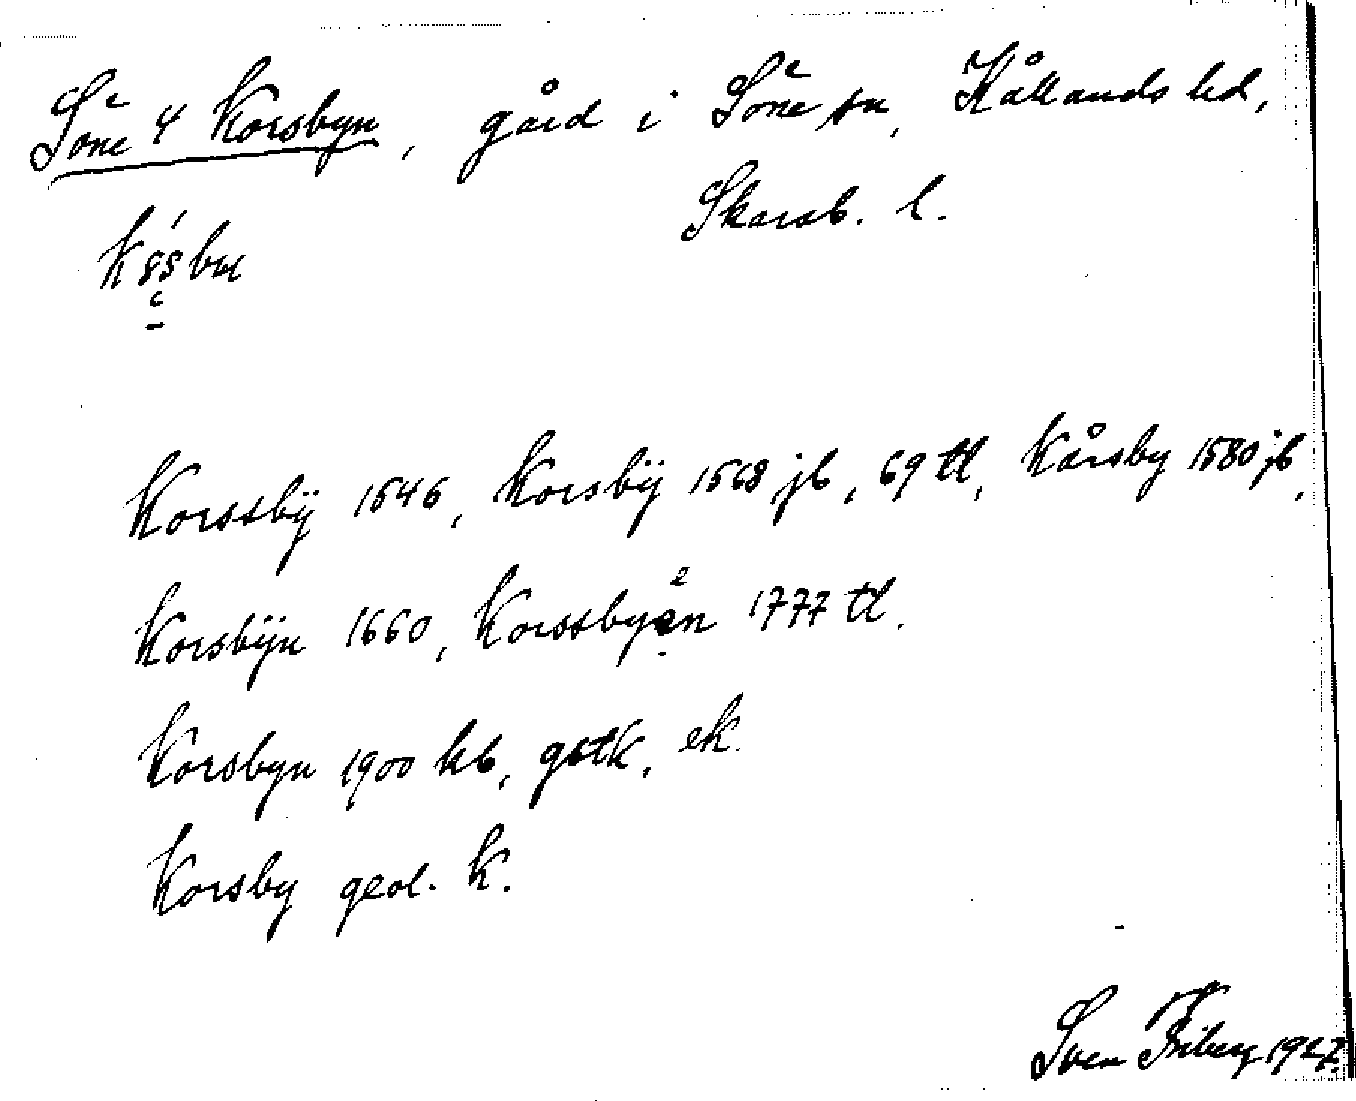 Söne 4 Korsbyn, gård i Söne sn, Kållands hd,
Skarab. l.
Korssbÿ 1546, Korsbÿ 1568 jb, 69 tl, Kårsby 1580 jb,
Korsbÿn 1660, Korssbyen 1777 tl.
Korsbyn 1900 kb, gstk, ek.
Korsby geol. k.
Sven Friberg 1927.